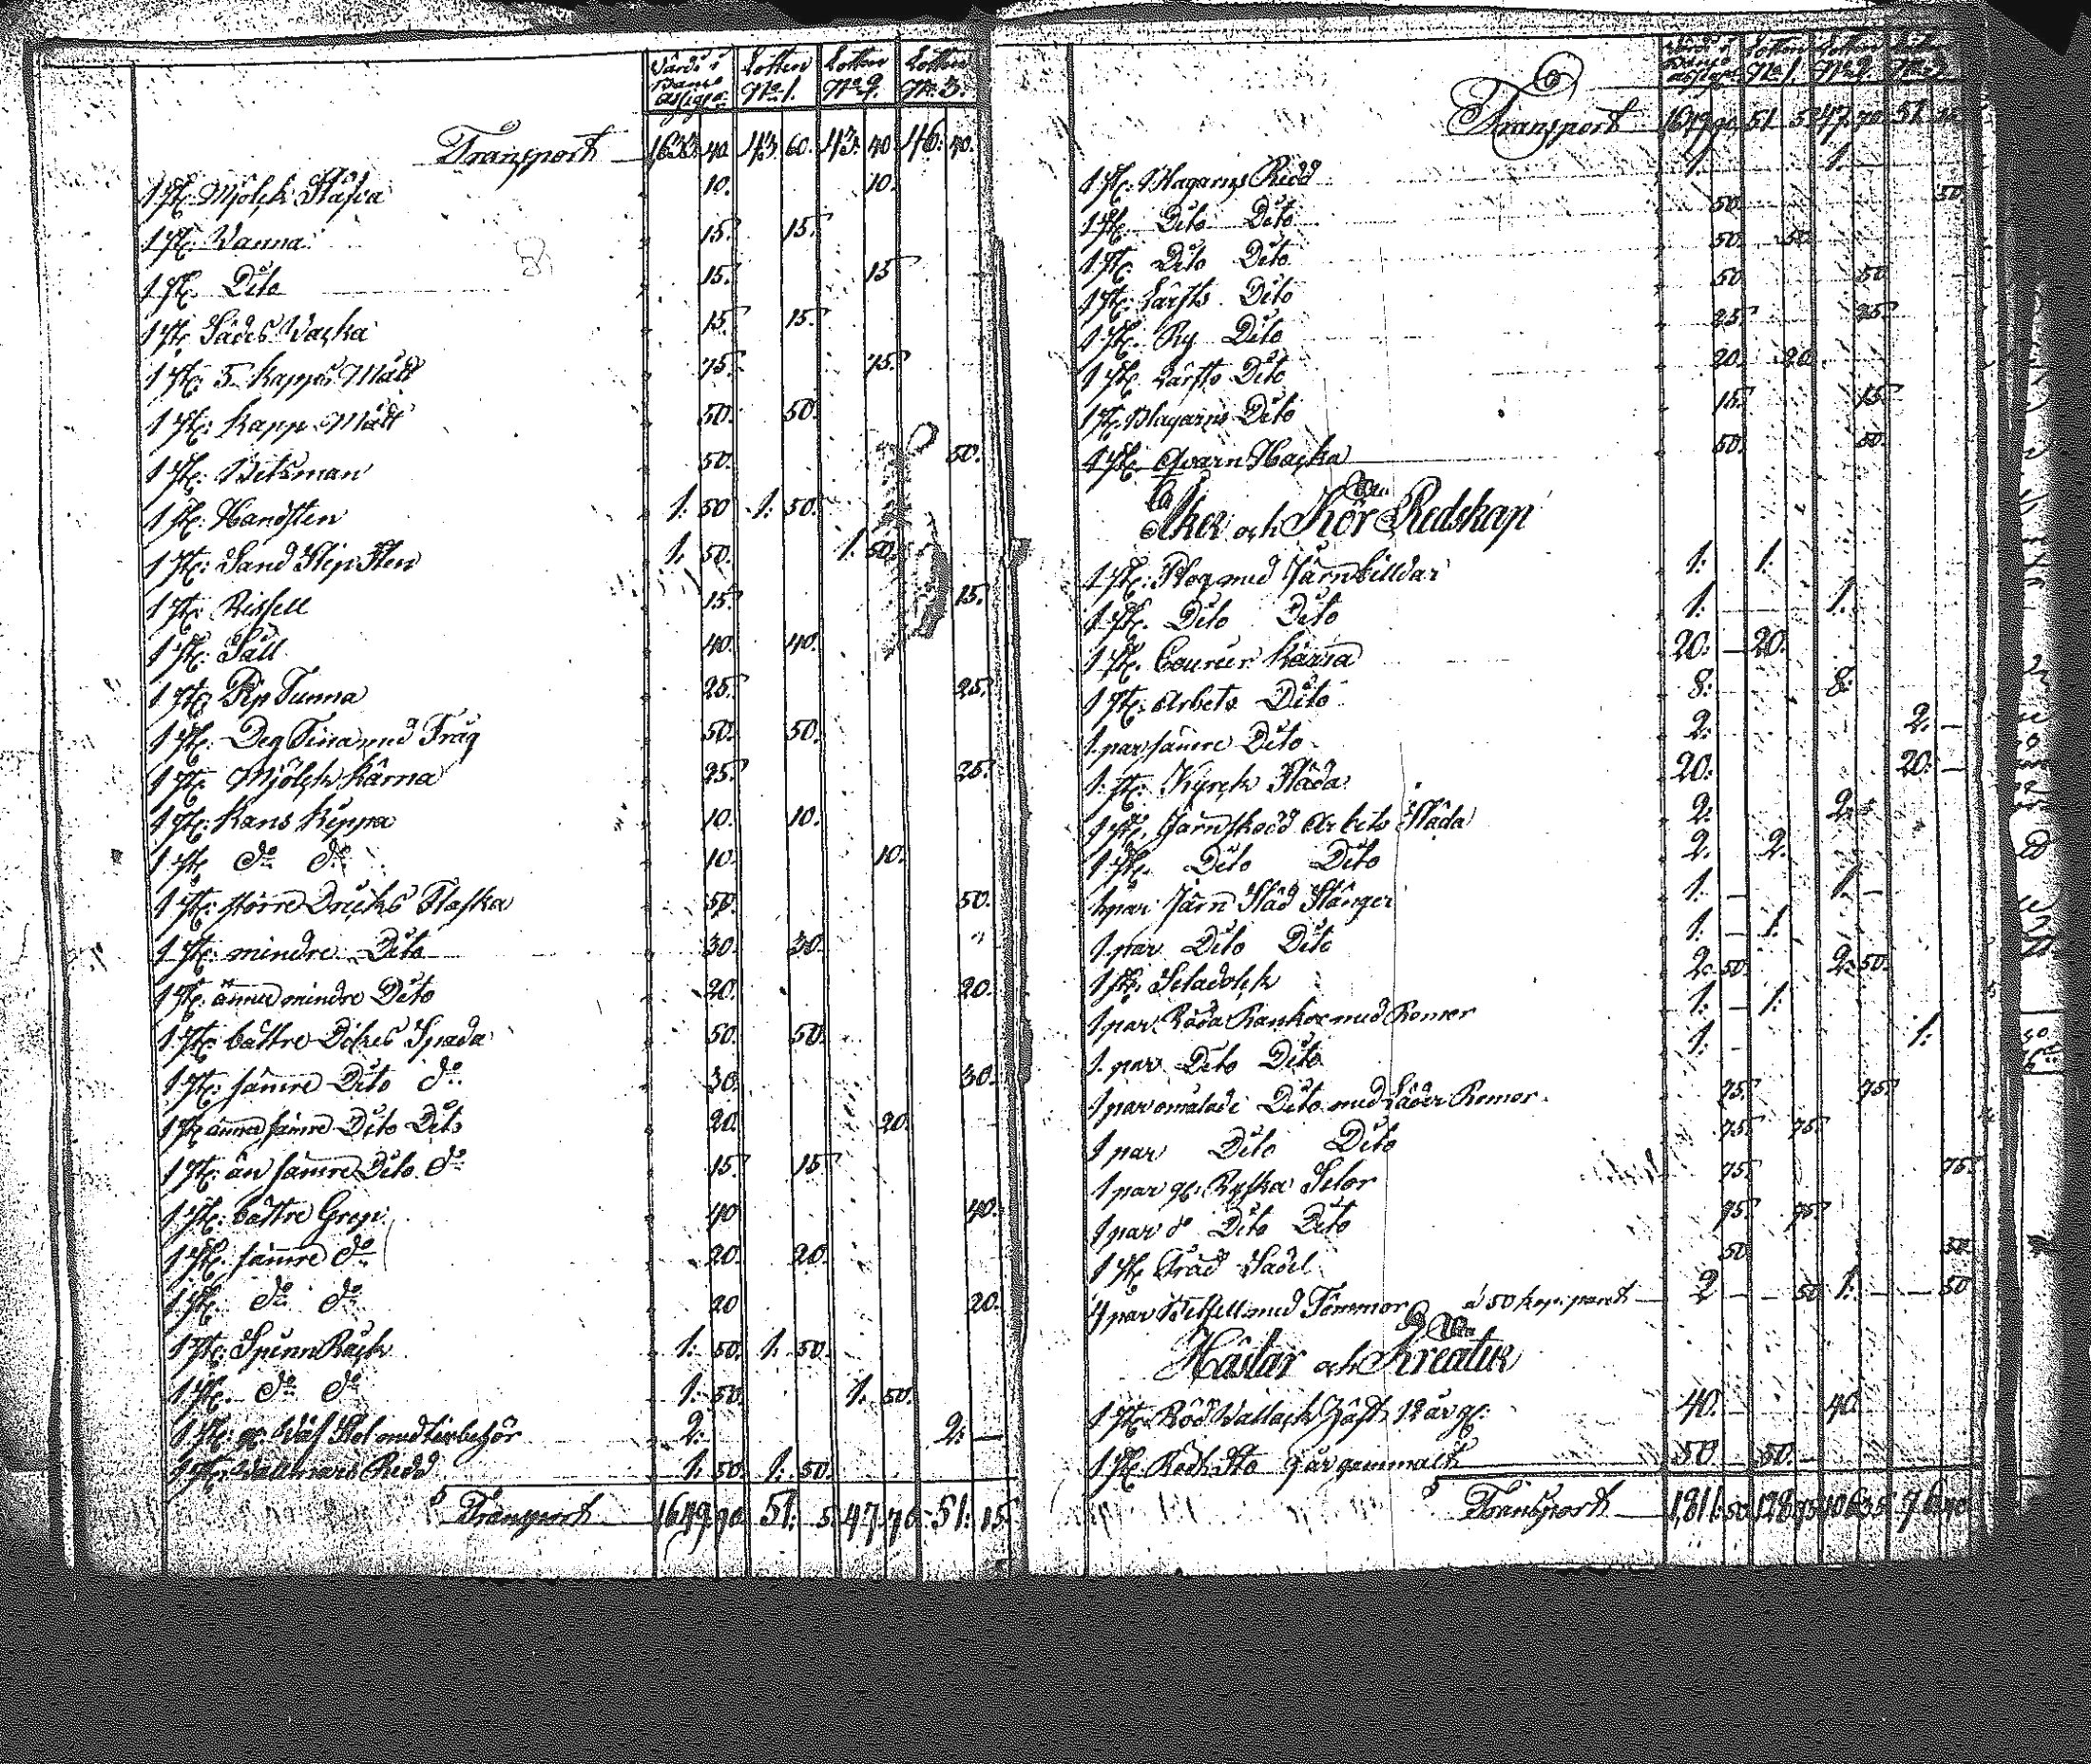 Värdi i Banco Assigna: Lotten No 1. Lotten No 2. Lotten No 3.
Transport 1633. 40. 43. 60. 43. 40 46. 40.
1 St: Mjölck Stäfva 10. 10.
1 St: Wanna 15. 15.
1 St. Dito 15. 15
1 St. Sädes Wacka 15. 15.
1 St: 5 Kapps Mått 75. 75.
1 St: Kapp Mått 50. 50.
1 St: Bitsman 50. 50.
1 St: Handsten 1. 50 1. 50.
1 St: Sand Slip Sten 1. 50. 1. 50.
1 St: Rissell 15. 15.
1 St: Såll 40. 40.
1 St: Tunna 25. 25.
1 St: Deg Tina med Tråg 50. 50.
1 St: Mjölck Kärna 25. 25.
1 St: Kans Kippa 10. 10.
1 St do do 10. 10.
1 St: större Dricks Flaska 50. 50.
1 St: mindre Dito 30. 30.
1 St: ännu mindre Dito 20. 20.
1 St: bättre Dikes Spada 50. 50.
1 St: sämre Dito do 30. 30.
1 St ännu sämre Dito Dito 20 20.
1 St: än sämre Dito do 15 15
1 St: bättre Grep 40 40.
1 St. sämre do 20. 20.
1 St. do do 20 20.
1 St: Spinn Råck 1. 50. 1. 50.
1 St. do do 1. 50. 1. 50.
1 St: gl. Wäf Stol med tilbehör 2. 2. —
1 St: Wallmars Redd 1. 50. 1. 50.
Transport 1649. 90. 51. 5. 47. 70. 51. 15.
Värdi i Banco Assign: Lotten No 1. Lotten No 2. Lotten No 3.
Transport 1649 90. 51 5. 47. 70. 51. 15
1 St: Blagarns Redd 1. 1.
1 St. Dito Dito 50. 50.
1 St. Dito Dito 50. 50.
1 St: Lärfts Dito 50 50
1 St. Ry Dito 25. 25.
1 St. Lärfts Dito 20. 20.
1 St. Blagarns Dito 15. 15
1 St. Qvarn Hacka 50. 50.
Åker och Kör Redskap
1 St: Plog med Järnbilldar 1. 1.
1 St. Dito Dito 1. 1.
1 St. Courier Kärra 20. — 20.
1 St: Arbets Dito 8. 8.
1 par sämre Dito 2. 2. —
1 St: Kyrck Släda 20. 20. —
1 St. Järnskodd Arbets Släda 2. 2.
1 St. Dito Dito 2. 2.
1 par Järn Släd Stänger 1. — 1. —
1 par Dito Dito 1. — 1.
1 St. Seladolck 2. 50. 2. 50.
1 par Röda Rankor med Remor 1. — 1.
1 par Dito Dito 1. — 1.
1 par omålade Dito med Läder Remor 75. 75.
1 par Dito Dito 75. 75
1 par gl. Ryska Selor 75 75.
1 par do Dito Dito 75. 75.
1 St. Träd Sadel 50 50
4 par Betsell med Tömmor à 50 kop. paret 2 — — 50 1. — — 50
Hästar och Kreatur
1 St. Röd Wallack Häst 12 år gl: 40. 40.
1 St. Rödt Sto 9 år gammalt 50 — 50. —
Transport 1,811. 50. 128. 95 106 35 76 40